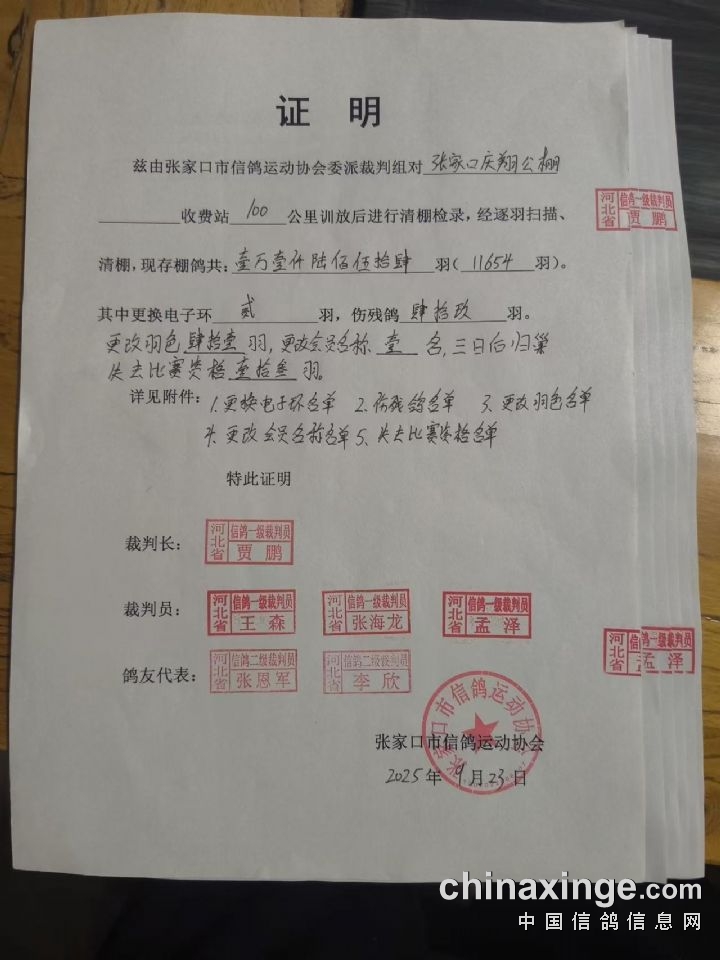 证 明
兹由张家口市信鸽运动协会委派裁判组对 张家口庆翔公棚
收费站 100 公里训放后进行清棚检录，经逐羽扫描、
河北省 信鸽一级裁判员 贾鹏
清棚，现存棚鸽共：壹万壹仟陆佰伍拾肆 羽（ 11654 羽）。
其中更换电子环 贰 羽，伤残鸽 肆拾玖 羽。
更改羽色 肆拾壹 羽，更改会员名称 壹 名，三日后归巢
失去比赛资格 壹拾叁 羽。
详见附件：1.更换电子环名单 2.伤残鸽名单 3.更改羽色名单
4.更改会员名称名单 5.失去比赛资格名单
特此证明
裁判长：河北省 信鸽一级裁判员 贾鹏
裁判员：河北省 信鸽一级裁判员 王森 河北省 信鸽一级裁判员 张海龙 河北省 信鸽一级裁判员 孟泽
河北省 信鸽一级裁判员 孟泽
鸽友代表：河北省 信鸽二级裁判员 张恩军 河北省 信鸽二级裁判员 李欣
张家口市信鸽运动协会
张家口市信鸽运动协会
2025年 9月 23日
chinaxinge.com
中国信鸽信息网